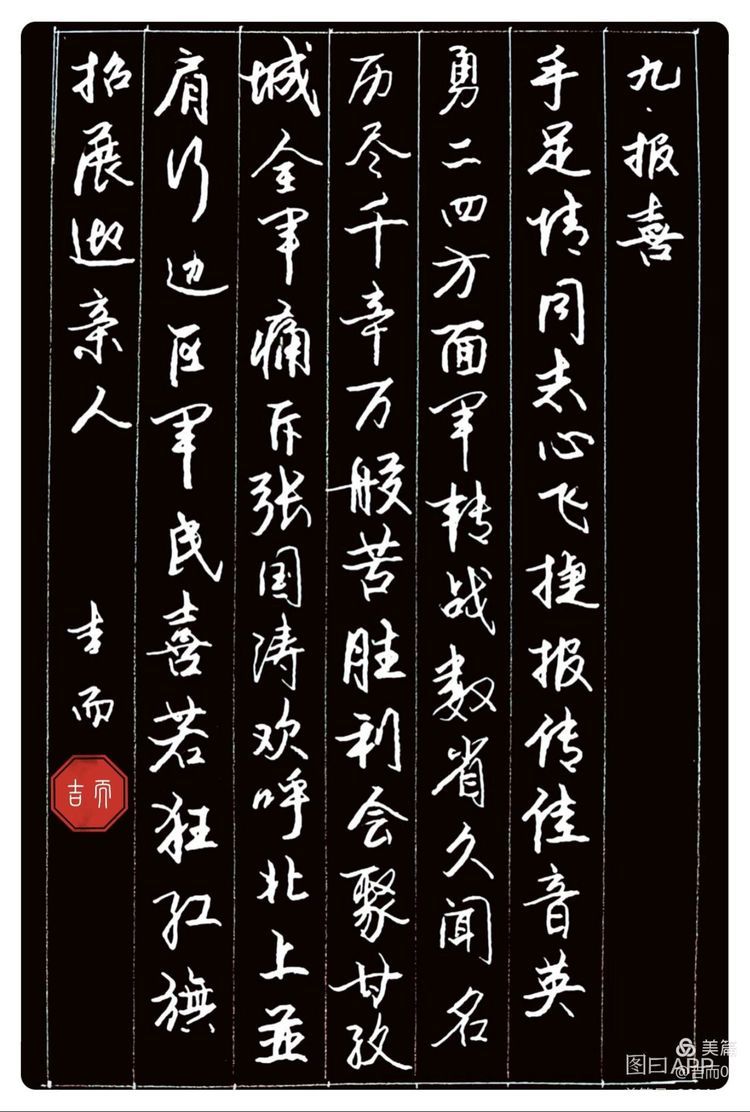 九·报喜
手足情同志心飞捷报传佳音英
勇二四方面军转战数省久闻名
历尽千辛万般苦胜利会聚甘孜
城全军痛斥张国涛欢呼北上並
肩行边区军民喜若狂红旗
招展迎亲人
吉而
吉而
美篇
图曰APP